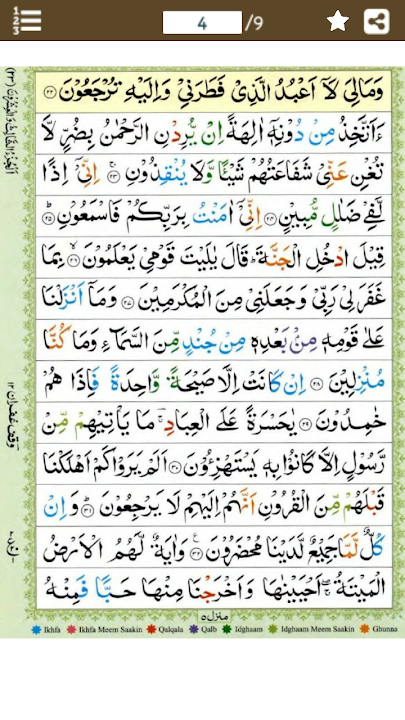 4 /9
وَمَالِىَ لَاۤ اَعْبُدُ الَّذِىْ فَطَرَنِىْ وَاِلَيْهِ تُرْجَعُوْنَ ﴿۲۲﴾
ءَاَتَّخِذُ مِنْ دُوْنِهٖۤ اٰلِهَةً اِنْ يُّرِدْنِ الرَّحْمٰنُ بِضُرٍّ لَّا
تُغْنِ عَنِّىْ شَفَاعَتُهُمْ شَيْـًٔا وَّلَا يُنْقِذُوْنِ ﴿۲۳﴾ اِنِّىْۤ اِذًا
لَّفِىْ ضَلٰلٍ مُّبِيْنٍ ﴿۲۴﴾ اِنِّىْۤ اٰمَنْتُ بِرَبِّكُمْ فَاسْمَعُوْنِ ﴿۲۵﴾
قِيْلَ ادْخُلِ الْجَنَّةَ ؕ قَالَ يٰلَيْتَ قَوْمِىْ يَعْلَمُوْنَ ﴿۲۶﴾ بِمَا
غَفَرَ لِىْ رَبِّىْ وَجَعَلَنِىْ مِنَ الْمُكْرَمِيْنَ ﴿۲۷﴾ وَمَاۤ اَنْزَلْنَا
عَلٰى قَوْمِهٖ مِنْۢ بَعْدِهٖ مِنْ جُنْدٍ مِّنَ السَّمَآءِ وَمَا كُنَّا
مُنْزِلِيْنَ ﴿۲۸﴾ اِنْ كَانَتْ اِلَّا صَيْحَةً وَّاحِدَةً فَاِذَا هُمْ
خٰمِدُوْنَ ﴿۲۹﴾ يٰحَسْرَةً عَلَى الْعِبَادِ ۚ مَا يَاْتِيْهِمْ مِّنْ
رَّسُوْلٍ اِلَّا كَانُوْا بِهٖ يَسْتَهْزِءُوْنَ ﴿۳۰﴾ اَلَمْ يَرَوْا كَمْ اَهْلَكْنَا
قَبْلَهُمْ مِّنَ الْقُرُوْنِ اَنَّهُمْ اِلَيْهِمْ لَا يَرْجِعُوْنَ ﴿۳۱﴾ وَاِنْ
كُلٌّ لَّمَّا جَمِيْعٌ لَّدَيْنَا مُحْضَرُوْنَ ﴿۳۲﴾ وَاٰيَةٌ لَّهُمُ الْاَرْضُ
الْمَيْتَةُ ۖۚ اَحْيَيْنٰهَا وَاَخْرَجْنَا مِنْهَا حَبًّا فَمِنْهُ
منزل ۵
Ikhfa Ikhfa Meem Saakin Qalqala Qalb Idghaam Idghaam Meem Saakin Ghunna